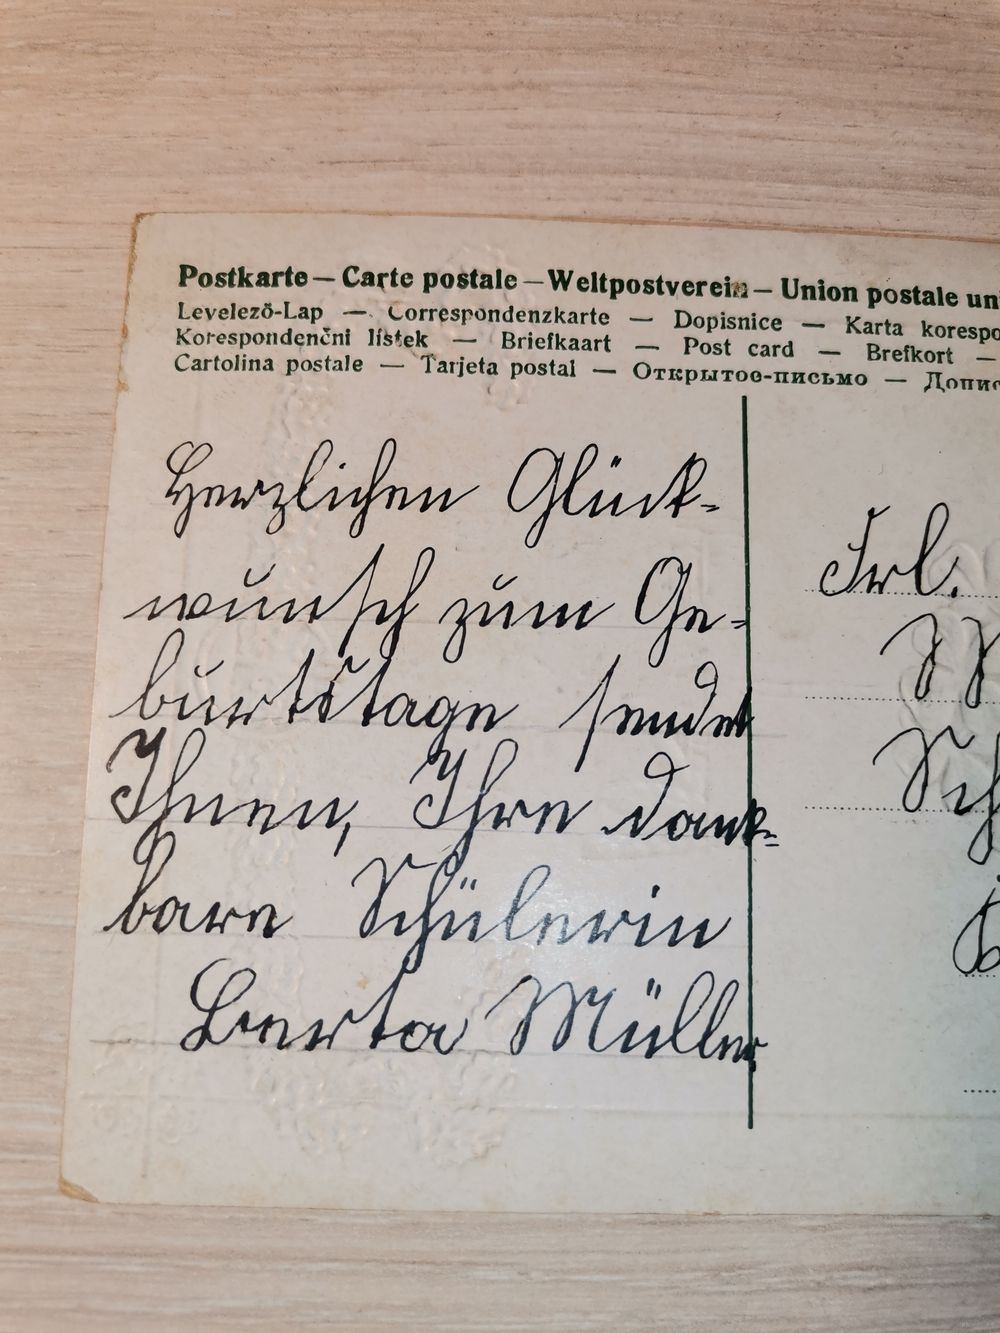 Postkarte — Carte postale — Weltpostverein — Union postale
Levelező-Lap — Correspondenzkarte — Dopisnice — Karta
Korespondenční lístek — Briefkaart — Post card — Brefkort —
Cartolina postale — Tarjeta postal — Открытое-письмо —
Herzlichen Glück-
wunsch zum Ge-
burtstage sendet
Ihnen, Ihre dank-
bare Schülerin
Berta Müller
Frl.